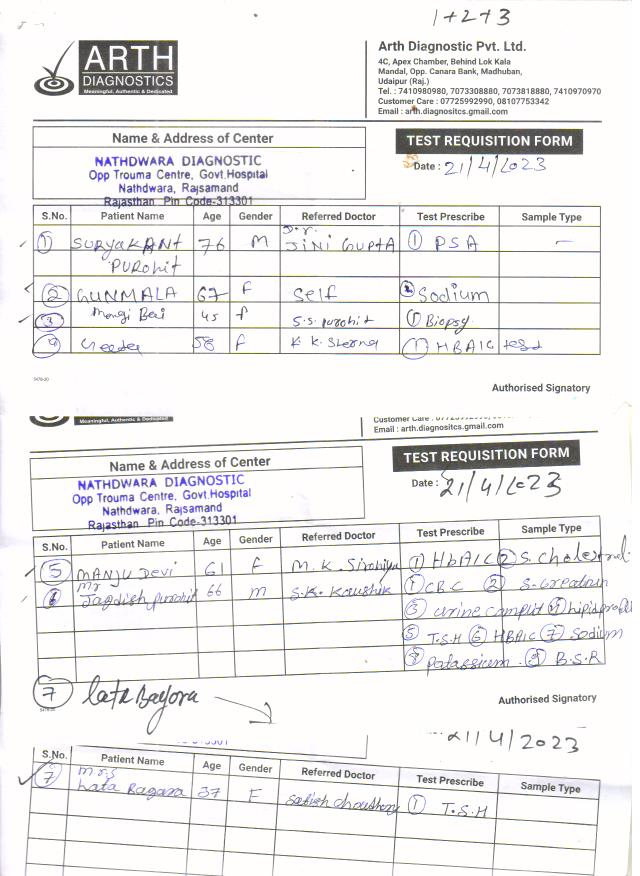 1+2+3
ARTH
DIAGNOSTICS
Meaningful, Authentic & Dedicated
Arth Diagnostic Pvt. Ltd.
4C, Apex Chamber, Behind Lok Kala
Mandal, Opp. Canara Bank, Madhuban,
Udaipur (Raj.)
Tel. : 7410980980, 7073308880, 7073818880, 7410970970
Customer Care : 07725992990, 08107753342
Email : arth.diagnositcs.gmail.com
Name & Address of Center
TEST REQUISITION FORM
NATHDWARA DIAGNOSTIC
Opp Trouma Centre, Govt.Hospital
Nathdwara, Rajsamand
Rajasthan Pin Code-313301
Date : 21/4/2023
S.No. Patient Name Age Gender Referred Doctor Test Prescribe Sample Type
1 SURYAKANT PUROHIT 76 M Dr. JINI GUPTA 1 PSA —
2 GUNMALA 67 F Self Sodium
3 Mangi Bai 45 f S.S. purohit 1 Biopsy
4 Geeta 58 F K.K. Sharma 1 HBAIC test
Authorised Signatory
Meaningful, Authentic & Dedicated
Email : arth.diagnositcs.gmail.com
Name & Address of Center
TEST REQUISITION FORM
NATHDWARA DIAGNOSTIC
Opp Trouma Centre, Govt.Hospital
Nathdwara, Rajsamand
Rajasthan Pin Code-313301
Date : 21/4/2023
S.No. Patient Name Age Gender Referred Doctor Test Prescribe Sample Type
5 MANJU Devi 61 F M.K. 1 HbAIC 2 S. Cholesterol
6 Mr Jagdish purohit 66 m S.K. Kaushik 1 CBC 2 S. Creatnin
3 urine complit 4 lipid profile
5 T.S.H 6 HBAIC 7 Sodium
8 Potassium 9 B.S.R
7 lata
Authorised Signatory
21/4/2023
S.No. Patient Name Age Gender Referred Doctor Test Prescribe Sample Type
7 mrs Lata 37 F Satish choudhary 1 T.S.H